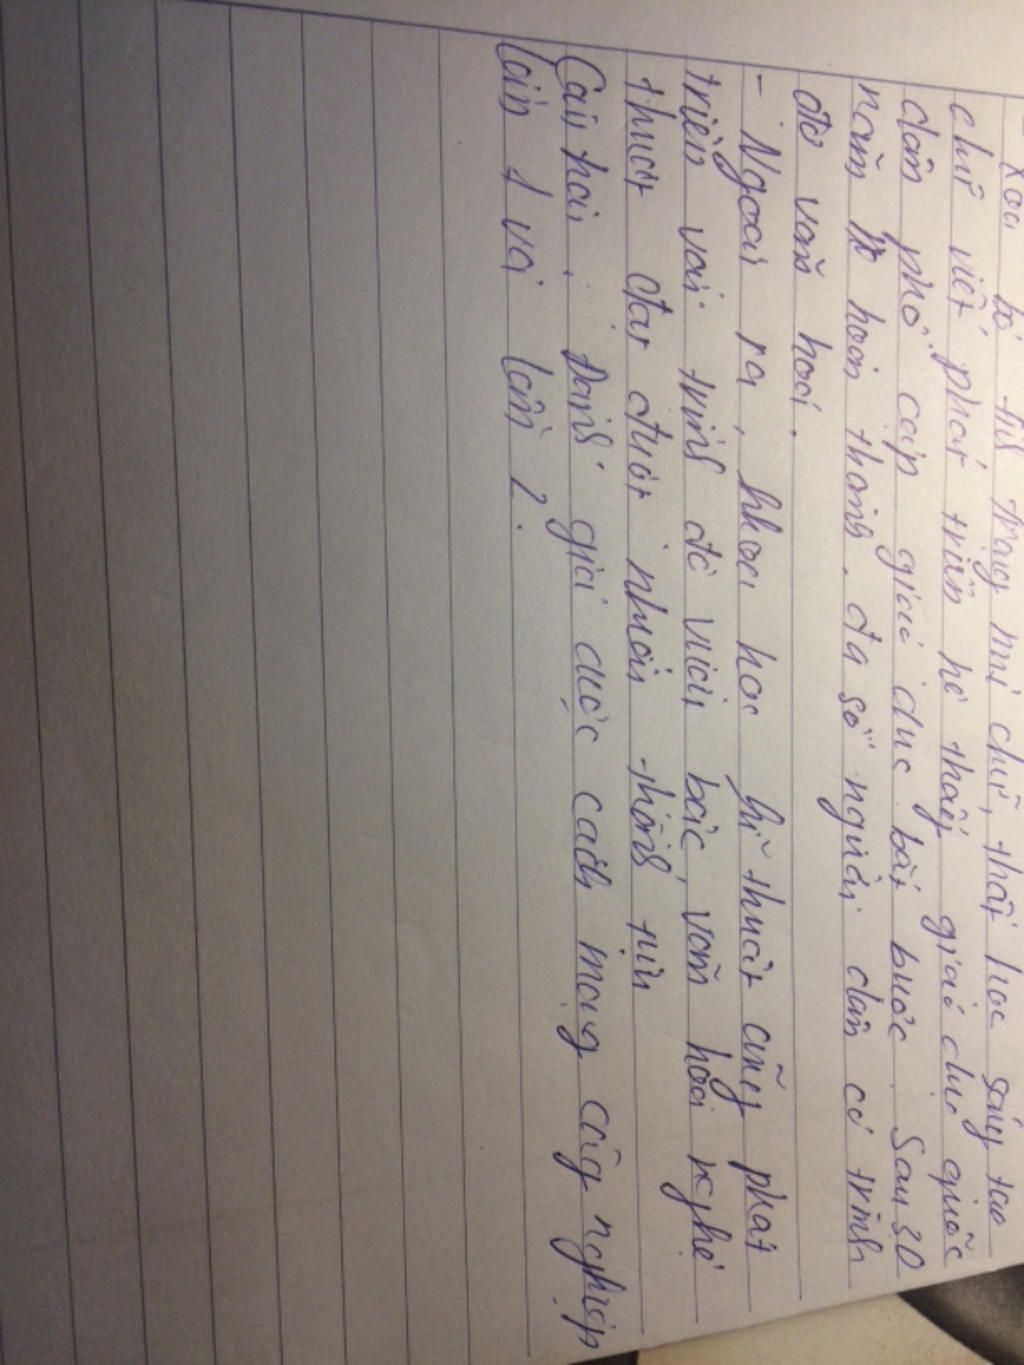 Xóa bỏ tình trạng mù chữ, thất học sáng tạo
chữ viết, phát triển hệ thống giáo dục quốc
dân, phổ cập giáo dục bắt buộc. Sau 30
năm hoàn thành, đa số người dân có trình
độ văn hoá.
- Ngoài ra, khoa học kĩ thuật cũng phát
triển với trình độ viện bác, văn hoá nghệ
thuật đạt được nhiều thành tựu
Câu hỏi: Đánh giá được cách mạng công nghiệp
lần 1 và lần 2.